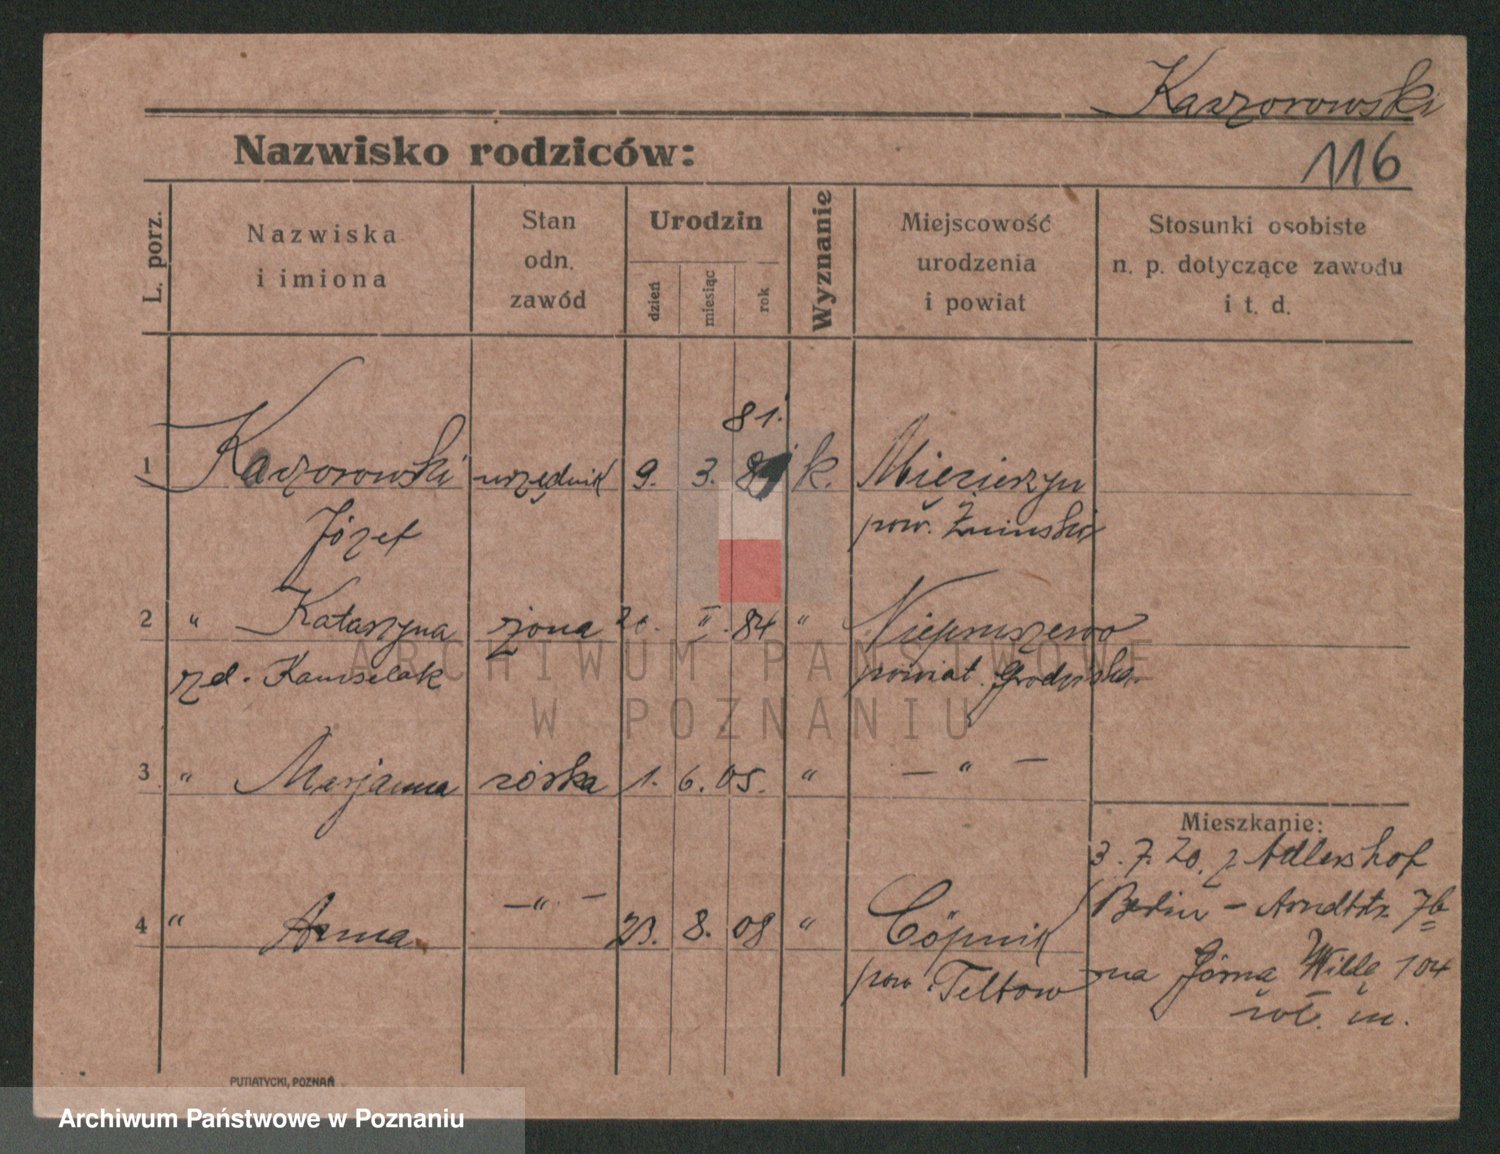 Kaczorowski
116
Nazwisko rodziców:
L. porz.
Nazwiska
i imiona
Stan
odn.
zawód
Urodzin
dzień
miesiąc
rok
Wyznanie
Miejscowość
urodzenia
i powiat
Stosunki osobiste
n. p. dotyczące zawodu
i t. d.
81.
1 Kaczorowski urzędnik 9. 3. k. Mięcierzyn
Józef pow. Żniński
2 " Katarzyna żona II. 84 " Niepruszewo
zd. Kamselak powiat Grodziski
3 " Marjanna córka 1. 6. 05. " — " —
4 " Anna —"— 23. 8. 08 " Cöpnik
pow. Teltow
Mieszkanie:
3. 7. 20. z Adlershof
Berlin – Arndtstr. 7b
na Górna Wilda 104
ARCHIWUM PAŃSTWOWE
W POZNANIU
PUTIATYCKI, POZNAŃ
Archiwum Państwowe w Poznaniu